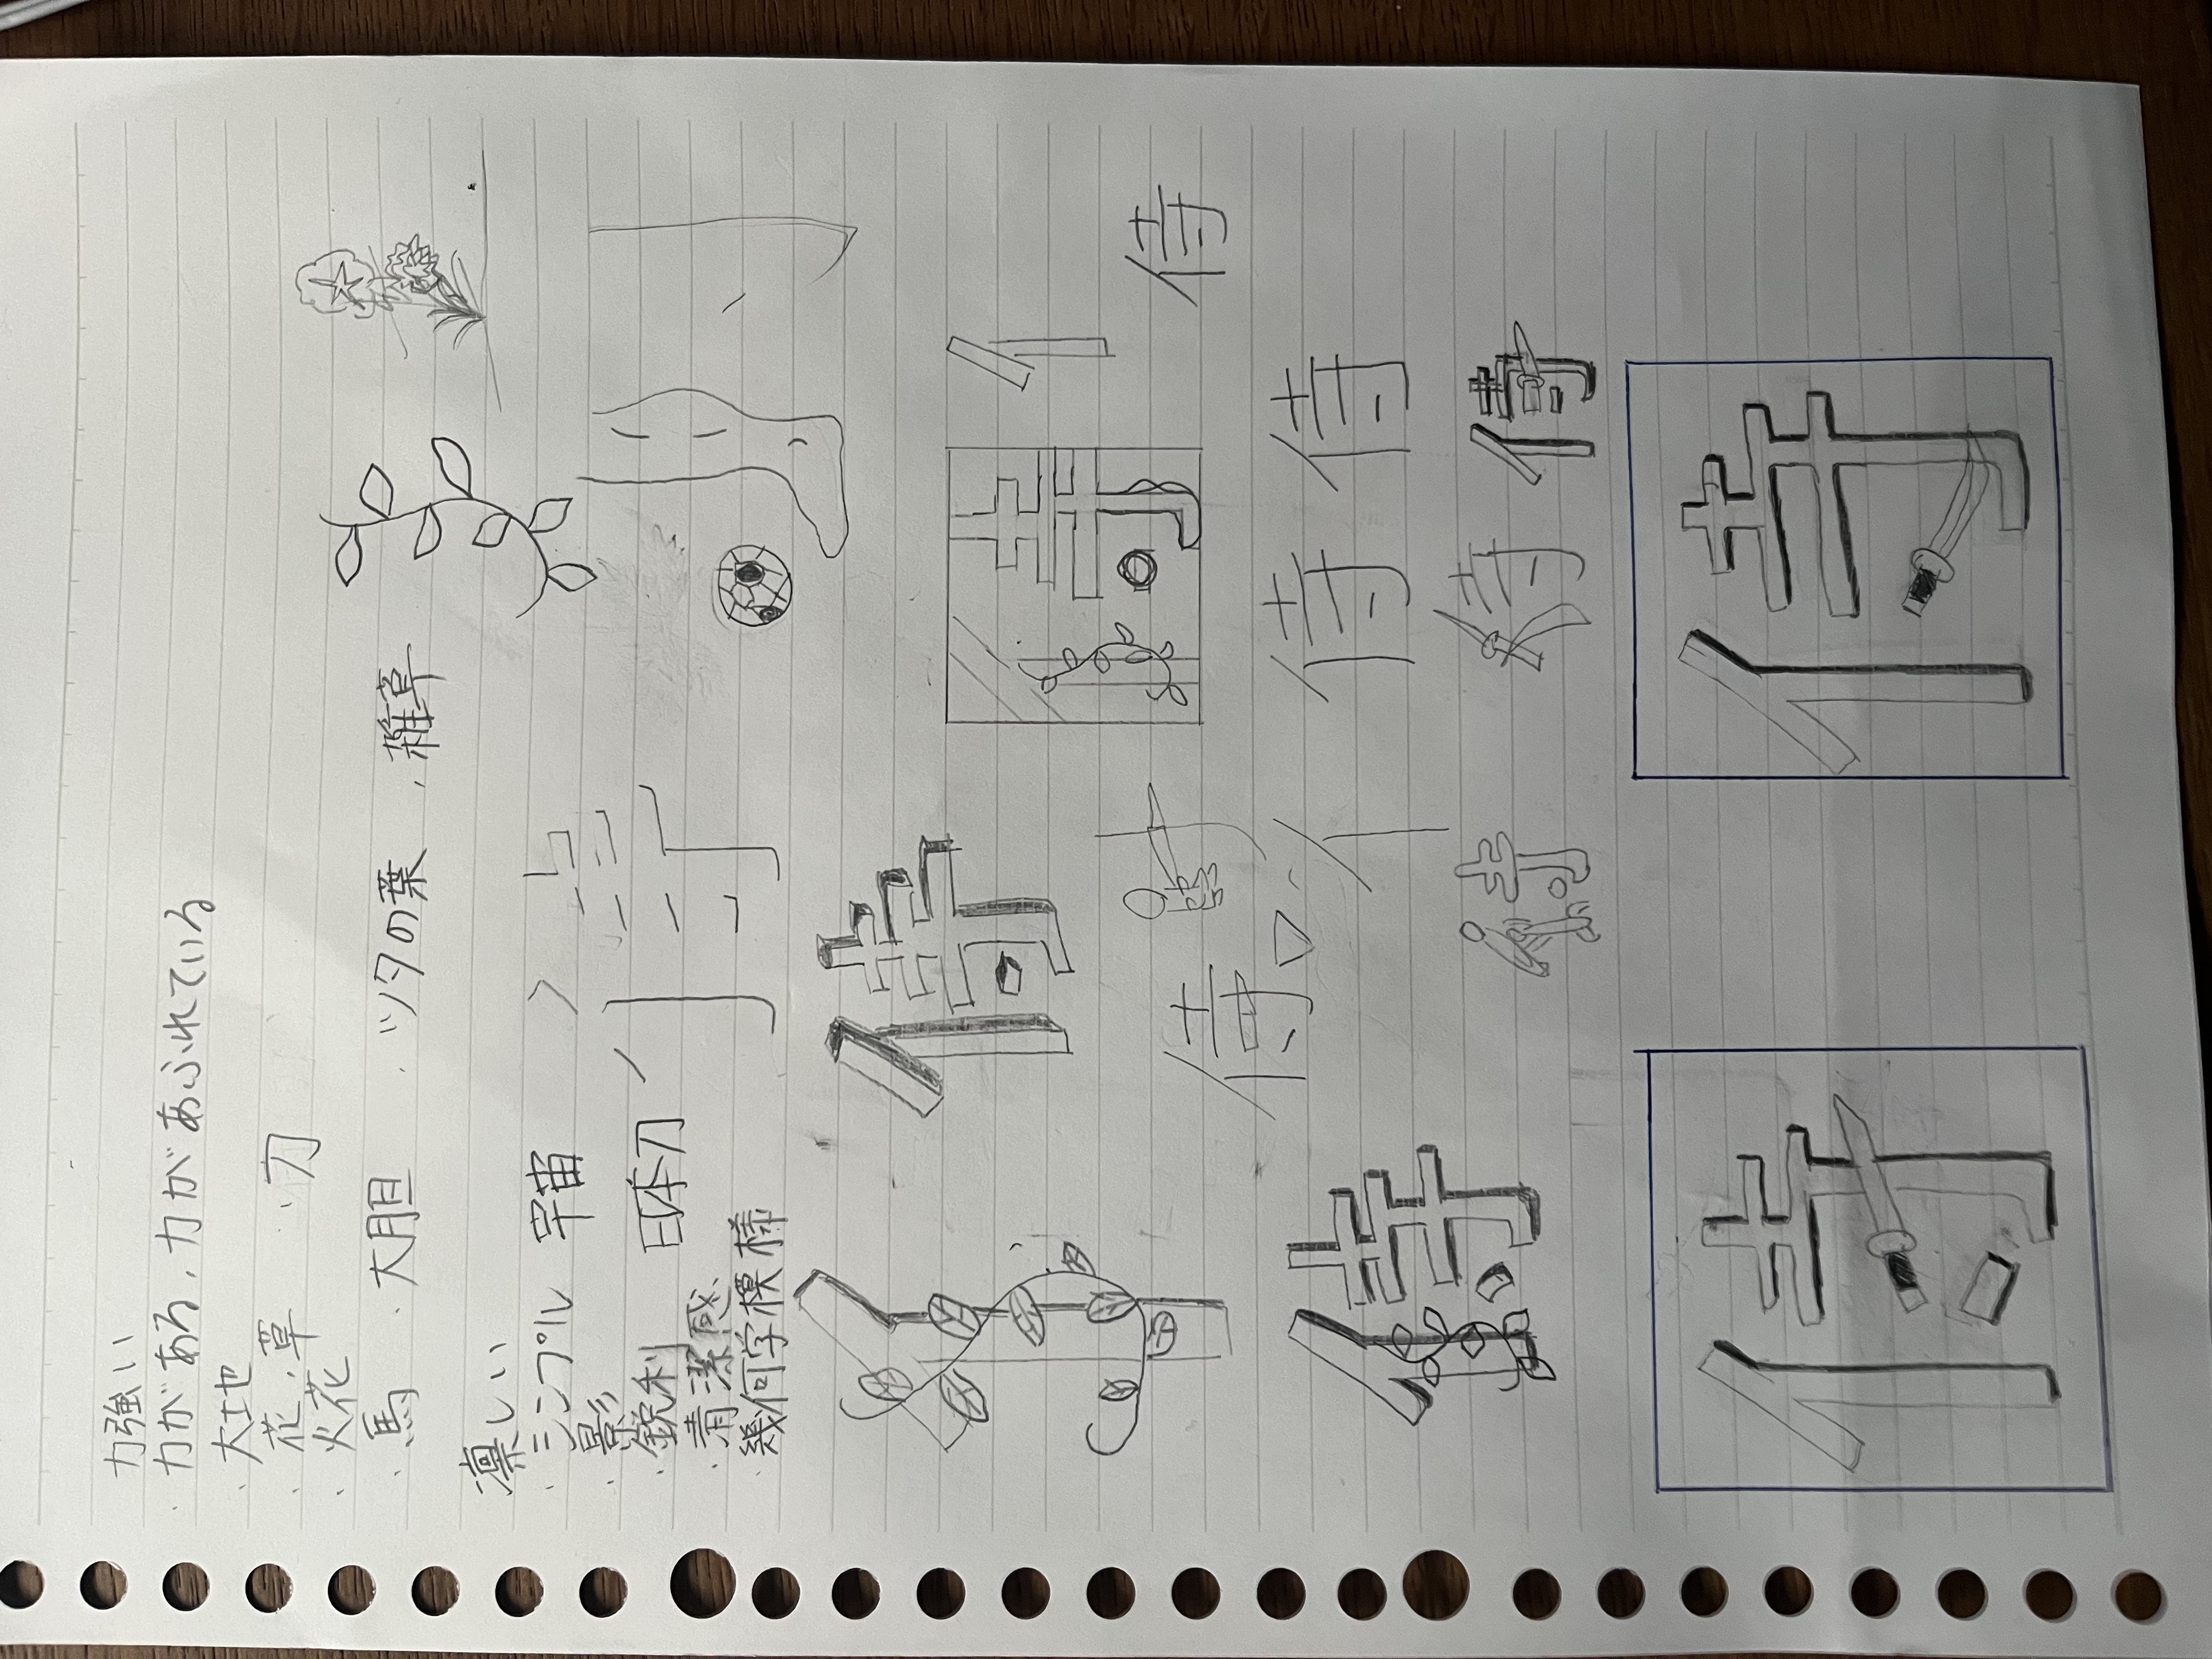 力強い
・力がある、力があふれている
・大地
・花・草 ・刀
・火花
・馬 ・大胆 ・ツタの葉 ・雑草
凛しい
・シンプル 宇宙
・影
・鋭利 日本刀
・清潔感
幾何学模様
侍
侍
侍
侍
侍
侍 侍
侍
侍 侍 侍
侍 侍